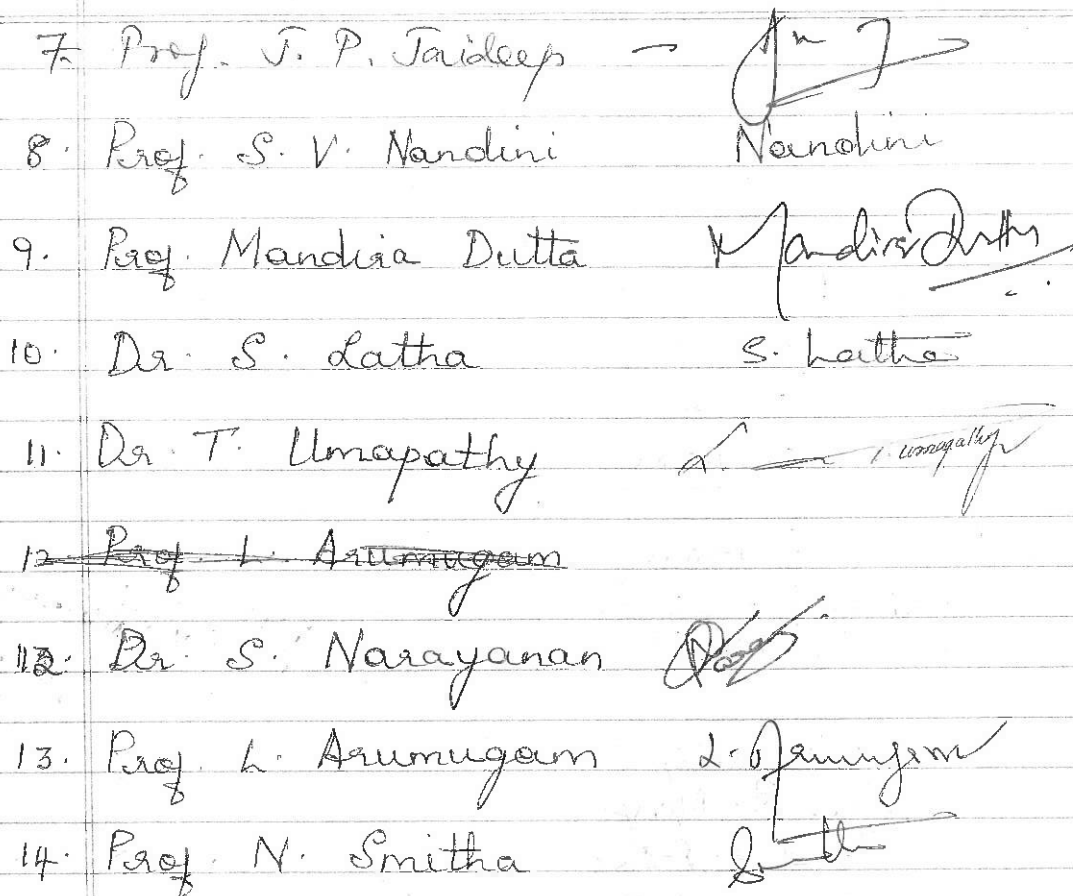 7. Prof. J. P. Jaideep -
8. Prof. S. V. Nandini Nandini
9. Prof. Mandira Dutta Mandira Dutta
10. Dr. S. Latha S. Latha
11. Dr. T. Umapathy T. Umapathy
12 Prof. L. Arumugam
12. Dr. S. Narayanan
13. Prof. L. Arumugam L. Arumugam
14. Prof. N. Smitha Smitha